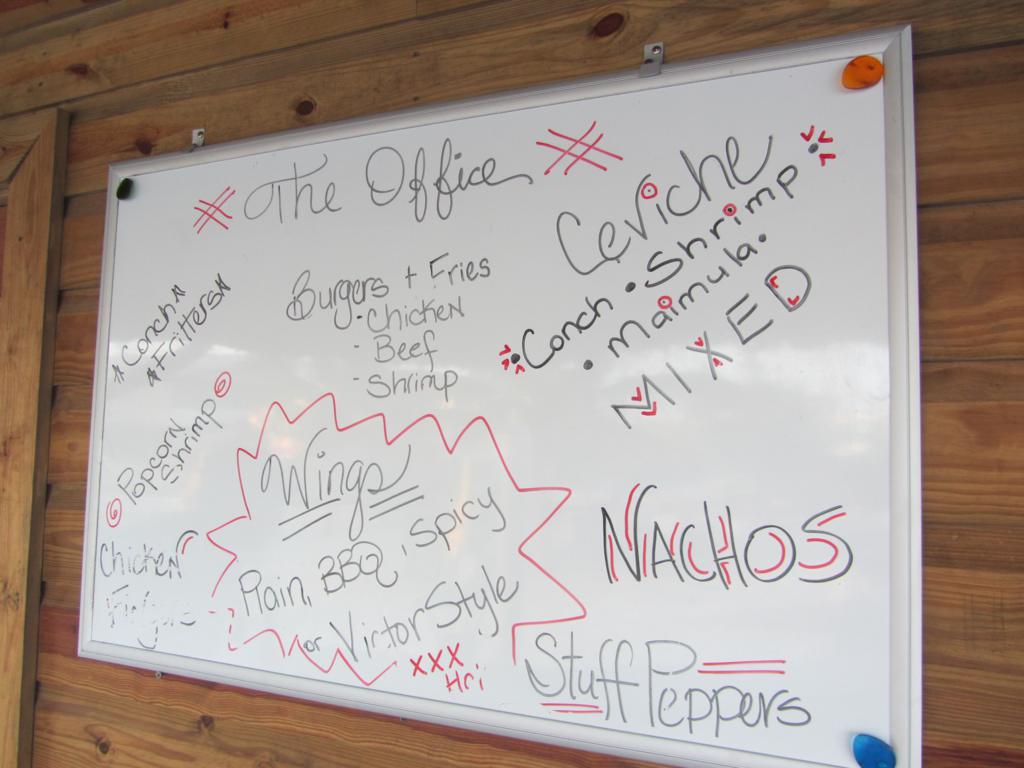 The Office
Conch
Fritters
Popcorn
Shrimp
Chicken
Burgers + Fries
· Chicken
- Beef
- Shrimp
Ceviche
• Conch • Shrimp •
• Maimula •
MIXED
Wings
Plain, BBQ, Spicy
or Victor Style
XXX
NACHOS
Stuff Peppers